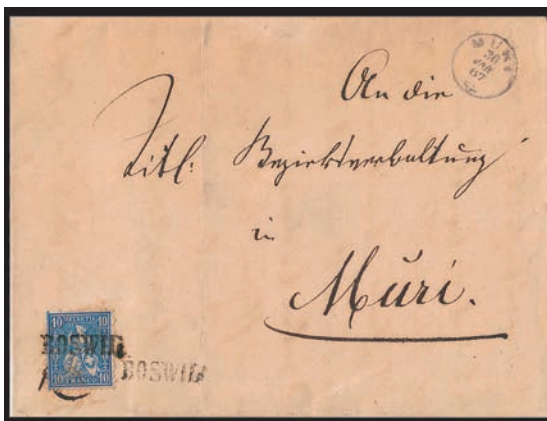 MURI
20
JAN
67
An die
Titl: Bezirksverwaltung
in
Muri.
10 HELVETIA 10
BOSWIL
10 FRANCO 10
BOSWIL